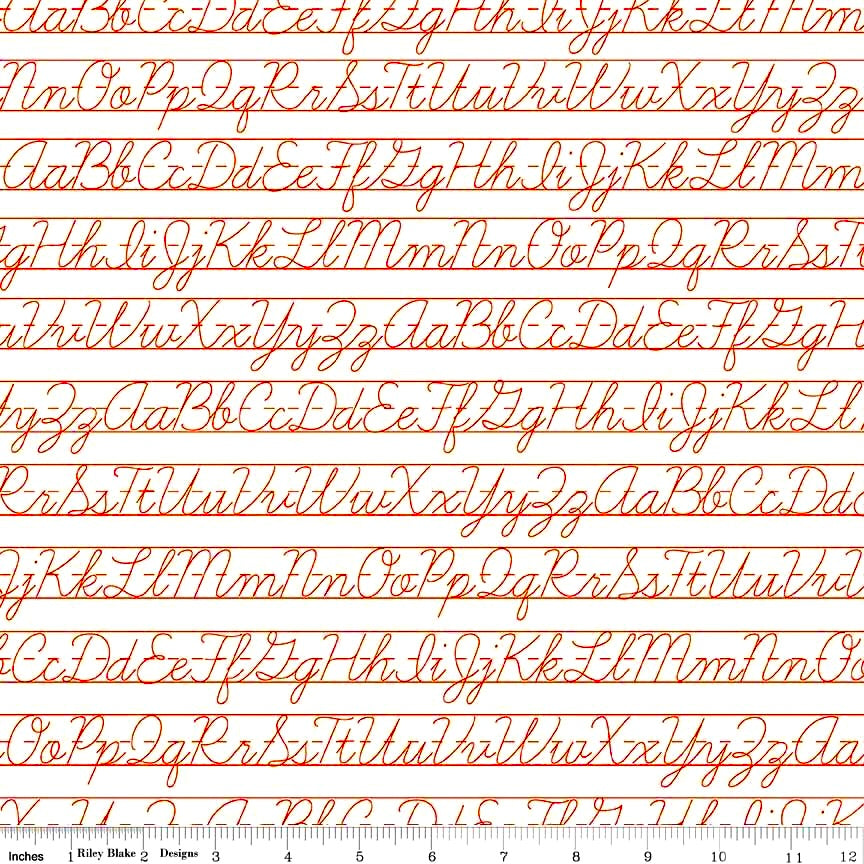 AaBbCcDdEeFfGgHhIiJjKkLlMm
NnOoPpQqRrSsTtUuVvWwXxYyZz
AaBbCcDdEeFfGgHhIiJjKkLlMm
gHhIiJjKkLlMmNnOoPpQqRrSsTt
uVvWwXxYyZzAaBbCcDdEeFfGgH
yZzAaBbCcDdEeFfGgHhIiJjKkLl
RrSsTtUuVvWwXxYyZzAaBbCcDd
JjKkLlMmNnOoPpQqRrSsTtUuVv
CcDdEeFfGgHhIiJjKkLlMmNnOo
OoPpQqRrSsTtUuVvWwXxYyZzAa
Inches 1 Riley Blake 2 Designs 3 4 5 6 7 8 9 10 11 12